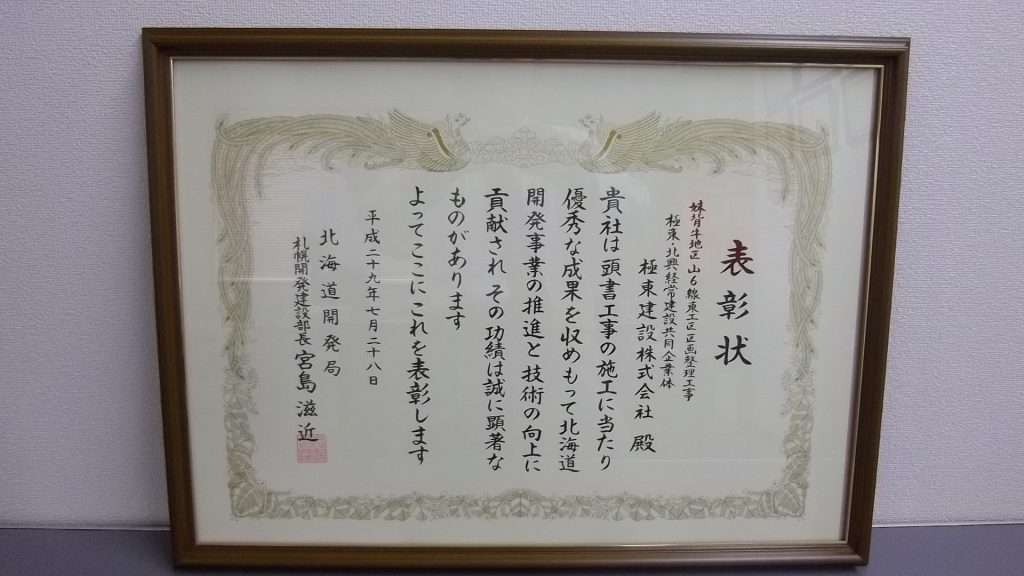 表彰状
妹背牛地区 山6線東工区区画整理工事
極東・北興経常建設共同企業体
極東建設株式会社 殿
貴社は頭書工事の施工に当たり
優秀な成果を収めもって北海道
開発事業の推進と技術の向上に
貢献されその功績は誠に顕著な
ものがあります
よってここにこれを表彰します
平成二十九年七月二十八日
北海道開発局
札幌開発建設部長 宮島滋近